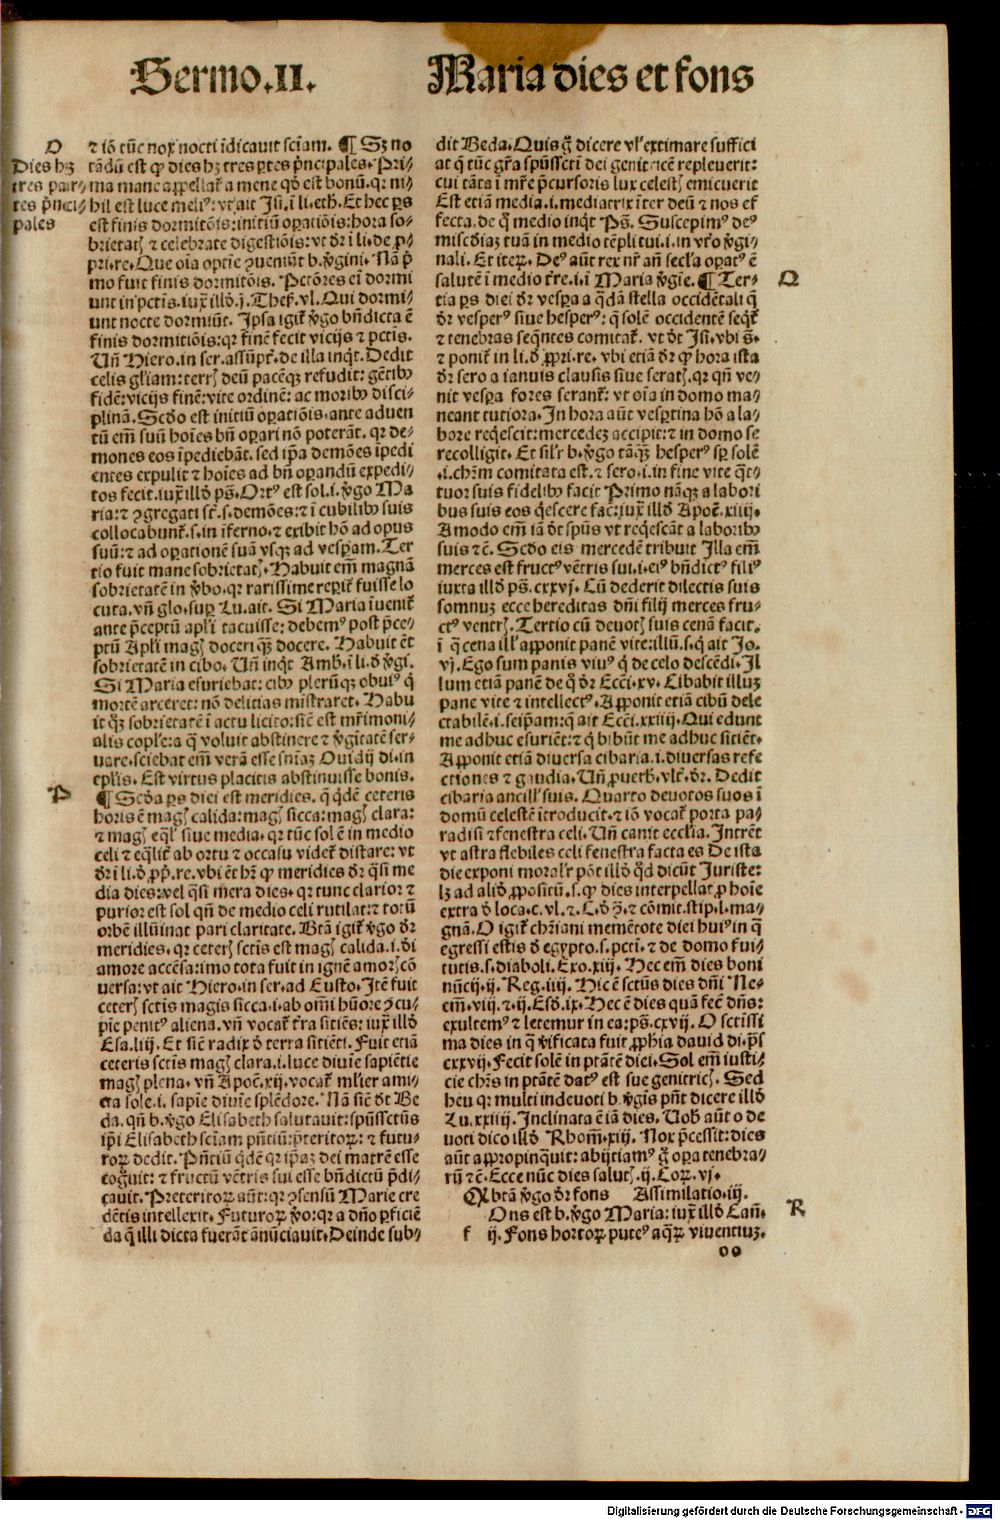 Sermo.II. Maria dies et fons
O
Dies hꝫ
tres par⸗
tes p̄nci⸗
pales
⁊ iō tūc nox nocti īdicauit sciam̄. ¶ Sꝫ no
tādū est ꝙ dies hꝫ tres ꝑtes p̄ncipales. Pri⸗
ma mane appellat᷑ a mene qd̓ est bonū. qꝛ ni⸗
hil est luce meliꝰ: vt ait Isi. ī li. eth. Et hec ꝑs
est finis dormitōis: initiū oꝑatiōis: hora so⸗
brietatꝭ ⁊ celebrate digestiōis: vt dr̄ ī li. de ꝓ⸗
pri. re. Que oīa optīe ꝯueniūt b. v̓gini. Nā p̄
mo fuit finis dormitōis. Pctōres eī dormi
unt in pctīs. iux̄ illd̓. j. Thes̄. vl. Qui dormi⸗
unt nocte dormiūt. Ipsa igit᷑ v̓go bn̄dicta ē
finis dormitiōis: qꝛ finē fecit vicijs ⁊ pctīs.
Un̄ Hiero. in ser. assūpt᷑. de illa inqͥt. Dedit
celis gl̓iam: terrꝭ deū pacēqꝫ refudit: gētibꝰ
fidē: vicijs finē: vite ordinē: ac moribꝰ disci⸗
plinā. Scd̓o est initiū oꝑatiōis. ante aduen
tū em̄ suū hoīes bn̄ oꝑari nō poterāt. qꝛ de⸗
mones eos īpediebāt. sed ip̄a demōes īpedi
entes expulit ⁊ hoīes ad bn̄ oꝑandū expedi⸗
tos fecit. iux̄ illd̓ ps̄. Ortꝰ est sol. i. v̓go Ma
ria: ⁊ ꝯgregati st̄. s. demōes: ⁊ ī cubilibꝰ suis
collocabunt᷑. s. in īferno. ⁊ exibit hō ad opus
suū: ⁊ ad oꝑationē suā vsqꝫ ad vesꝑam. Ter
tio fuit mane sobrietatꝭ. Habuit em̄ magnā
sobrietatē in v̓bo. qꝛ rarissime reꝑit᷑ fuisse lo
cuta. vn̄ glo. suꝑ Lu. ait. Si Maria īuenit᷑
ante p̄ceptū apl̓i tacuisse: debemꝰ post p̄ce⸗
ptū Apl̓i magꝭ doceri qͣꝫ docere. Habuit ēt
sobrietatē in cibo. Un̄ inqͥt Amb̓. ī li. d̓ v̓gi.
Si Maria esuriebat: cibꝰ plerūqꝫ obuiꝰ q̄
mortē arceret: nō delitias mīstraret. Habu
it qꝫ sobrietatē ī actu licito: sic̄ est mr̄imoni⸗
alis copl̓e: a q̄ voluit abstinere ⁊ v̓gītatē ser⸗
uare. sciebat em̄ verā esse sn̄iaꝫ Ouidij di. in
epl̓is. Est virtus placitis abstinuisse bonis.
P
¶ Scd̓a ꝑs diei est meridies. q̄ qͥdē ceteris
horis ē magꝭ calida: magꝭ sicca: magꝭ clara:
⁊ magꝭ eql̓ siue media. qꝛ tūc sol ē in medio
celi ⁊ eqͣlit᷑ ab ortu ⁊ occasu videt᷑ distare: vt
dr̄ ī li. d̓ ꝓp̄. re. vbi ēt hr̄ ꝙ meridies dr̄ qͣsi me
dia dies: vel qͣsi mera dies. qꝛ tunc clarior ⁊
purior est sol qn̄ de medio celi rutilat: ⁊ totū
orbē illūinat pari claritate. Btā igit᷑ v̓go dr̄
meridies. qꝛ ceterꝭ sctīs est magꝭ calida. i. d̓i
amore accēsa: imo tota fuit in ignē amorꝭ cō
uersa: vt ait Hiero. in ser. ad Eusto. Itē fuit
ceterꝭ sctīs magis sicca. i. ab om̄i hūore ꝯcu⸗
pīe penitꝰ aliena. vn̄ vocat᷑ t̓ra sitiēs: iux̄ illd̓
Esa. liij. Et sic̄ radix d̓ terra sitiēti. Fuit etiā
ceteris sctīs magꝭ clara. i. luce diuīe sapiētie
magꝭ plena. vn̄ Apoc̄. xij. vocat᷑ ml̓ier ami⸗
cta sole. i. sapīe diuīe splēdore. Nā sic̄ dt̄ Be
da. qn̄ b. v̓go Elisabeth salutauit: spūssctūs
ip̄i Elisabeth sciam̄ pn̄tiū: p̄teritoꝝ: ⁊ futu⸗
roꝝ dedit. Pn̄tiū qͥdē qꝛ ip̄aꝫ dei matrē esse
cog̓uit: ⁊ fructū vētris sui esse bn̄dictū p̄di⸗
cauit. Preteritoꝝ aūt: qꝛ ꝯsensū Marie cre
dētis intellexit. Futuroꝝ v̓o: qꝛ a dn̄o ꝑficiē
da q̄ illi dicta fuerāt ānūciauit. Deinde sub⸗
dit Beda. Quis g̓ dicere vl̓ extimare suffici
at q̄ tūc gr̄a spūsscti dei genitricē repleuerit:
cui tāta ī mr̄e p̄cursoris lux celestꝭ emicuerit
Est etiā media. i. mediatrix īter deū ⁊ nos ef
fecta. de q̄ medio inqͥt Ps̄. Suscepimꝰ deꝰ
misc̄diaꝫ tuā in medio tēpli tui. i. in vt̓o v̓gi⸗
nali. Et iteꝝ. Deꝰ aūt rex nr̄ an̄ secl̓a oꝑatꝰ ē
salutē ī medio t̓re. i. ī Maria v̓gīe. ¶ Ter⸗
Q
tia ꝑs diei dr̄ vesꝑa a qͣdā stella occidētali q̄
dr̄ vesperꝰ siue hesperꝰ: q̄ solē occidentē seqͥt᷑
⁊ tenebras seqn̄tes comitat᷑. vt dt̄ Isi. vbi s̄.
⁊ ponit᷑ in li. d̓ ꝓpri. re. vbi etiā dr̄ ꝙ hora ista
dr̄ sero a ianuis clausis siue seratꝭ. qꝛ qn̄ ve⸗
nit vesꝑa fores serant᷑: vt oīa in domo ma⸗
neant tutiora. In hora aūt vesꝑtina hō a la⸗
bore reqͥescit: mercedeꝫ accipit: ⁊ in domo se
recolligit. Et sil̓r b. v̓go tāqͣꝫ hesperꝰ sꝑ solē
.i. chr̄m comitata est. ⁊ sero. i. in fine vite qͣt⸗
tuor suis fidelibꝰ facit Primo nāqꝫ a labori
bus suis eos qͥescere fac̄: iux̄ illd̓ Apoc̄. xiiij.
Amodo em̄ iā dt̄ spūs vt reqͥescāt a laboribꝰ
suis ⁊c̄. Scd̓o eis mercedē tribuit Illa em̄
merces est fructꝰ vētris sui. i. eiꝰ bn̄dictꝰ filiꝰ
iuxta illd̓ ps̄. cxxvj. Cū dederit dilectis suis
somnuꝫ ecce hereditas dn̄i filij merces fru⸗
ctꝰ ventrꝭ. Tertio cū deuotꝭ suis cenā facit.
ī q̄ cena ill̓ apponit panē vite: illū. s. q̄ ait Jo.
vj. Ego sum panis viuꝰ q̄ de celo descēdi. Il
lum etiā panē de q̄ dr̄ Ecc̄i. xv. Cibabit illuꝫ
pane vite ⁊ intellectꝰ. Apponit etiā cibū dele
ctabilē. i. seip̄am: q̄ ait Ecc̄i. xxiiij. Qui edunt
me adhuc esuriēt: ⁊ q̄ bibūt me adhuc sitiēt.
Apponit etiā diuersa cibaria. i. diuersas refe
ctiones ⁊ gaudia. Un̄ ꝓuerb̓. vlt̓. dr̄. Dedit
cibaria ancill̓ suis. Quarto deuotos suos ī
domū celestē ītroducit. ⁊ iō vocat᷑ porta pa⸗
radisi ⁊ fenestra celi. Un̄ canit eccl̓ia. Intrēt
vt astra flebiles celi fenestra facta es De ista
die exponi moral̓r pōt illd̓ qd̓ dicūt Juriste:
lꝫ ad aliḋ ꝓpositū. s. ꝙ dies interpellat ꝓ hoīe
extra d̓ loca. c. vl. ⁊. C. d̓ ꝫ. ⁊ cōmit. stip. l. ma⸗
gnā. O igit᷑ chr̄iani memētote diei huiꝰ in q̄
egressi estis d̓ egypto. s. pcti. ⁊ de domo ẜui⸗
tutis. s. diaboli. Exo. xiij. Hec em̄ dies boni
nūcij. ij. Reg. iiij. Hic ē sctūs dies dn̄i Ne⸗
em̄. viij. ⁊. ij. Esd̓. ix. Hec ē dies quā fec̄ dn̄s:
exultemꝰ ⁊ letemur in ea: ps̄. cxvij. O sctissi
ma dies in q̄ v̓ificata fuit ꝓphīa dauid di. p̄s
cxxvij. Fecit solē in ptātē diei. Sol em̄ iusti⸗
cie chr̄s in ptātē datꝰ est sue genitricꝭ. Sed
heu qꝛ multi indeuoti b. v̓gīs pn̄t dicere illd̓
Lu. xxiiij. Inclinata ē iā dies. Uob̓ aūt o de
uoti dico illd̓ Rhom̄. xiij. Nox p̄cessit: dies
aūt appropinqͣuit: abijciamꝰ g̓ oꝑa tenebra⸗
rū ⁊c̄. Ecce nūc dies salutꝭ. ij. Coꝝ. vj.
Qꝙ btā v̓go dr̄ fons Assimilatio. iij.
R
Ons est b. v̓go Maria: iux̄ illd̓ Can̄.
f ij. Fons hortoꝝ puteꝰ aqͣꝝ viuentiuꝫ.
oo
Digitalisierung gefördert durch die Deutsche Forschungsgemeinschaft - DFG